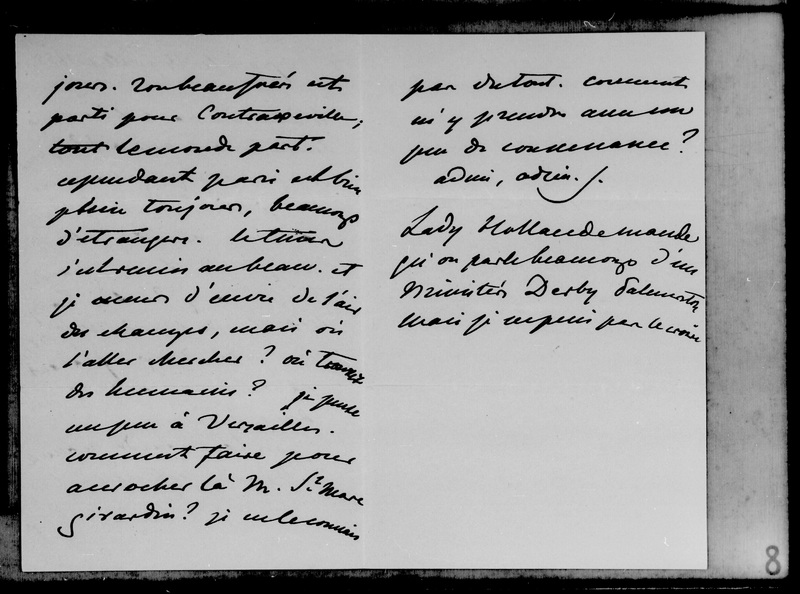 jours. Toubeau frères est
parti pour Contrexeville,
tout le monde part.
cependant paris est bien
plein toujours, beaucoup
d'étrangers. le temps
s'est remis au beau. et
je meurs d'envie de l'air
des champs, mais où
l'aller chercher? où trouver
des humains? je pense
un peu à Versailles.
comment faire pour
accrocher là M. St Marc
girardin? je ne le connais
pas du tout. comment
m'y prendre avec un
peu de convenance?
adieu, adieu.
Lady Holland me mande
qu'on parle beaucoup d'un
Ministère Derby Palmerston
mais je ne puis pas le croire
8